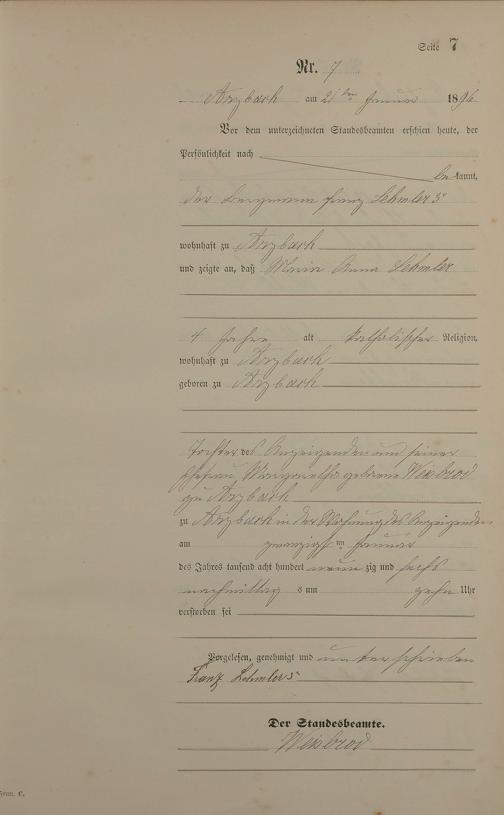 Seite 7
Nr. 7
Arzbach am 21ten Januar 1896
Vor dem unterzeichneten Standesbeamten erschien heute, der
Persönlichkeit nach
be kannt,
der Bergmann Franz Lehmler 5r
wohnhaft zu Arzbach
und zeigte an, daß Maria Anna Lehmler
4 Jahre alt katholischer Religion,
wohnhaft zu Arzbach
geboren zu Arzbach
Tochter des Anzeigenden und seiner
Ehefrau Margaretha geborene Weisbrod
zu Arzbach
zu Arzbach in der Wohnung des Anzeigenden
am zwanzigsten Januar
des Jahres tausend acht hundert neun zig und sechs
nachmittag s um zehn Uhr
verstorben sei
Vorgelesen, genehmigt und unterschrieben
Franz Lehmler 5
Der Standesbeamte.
Weisbrod
Form. C.